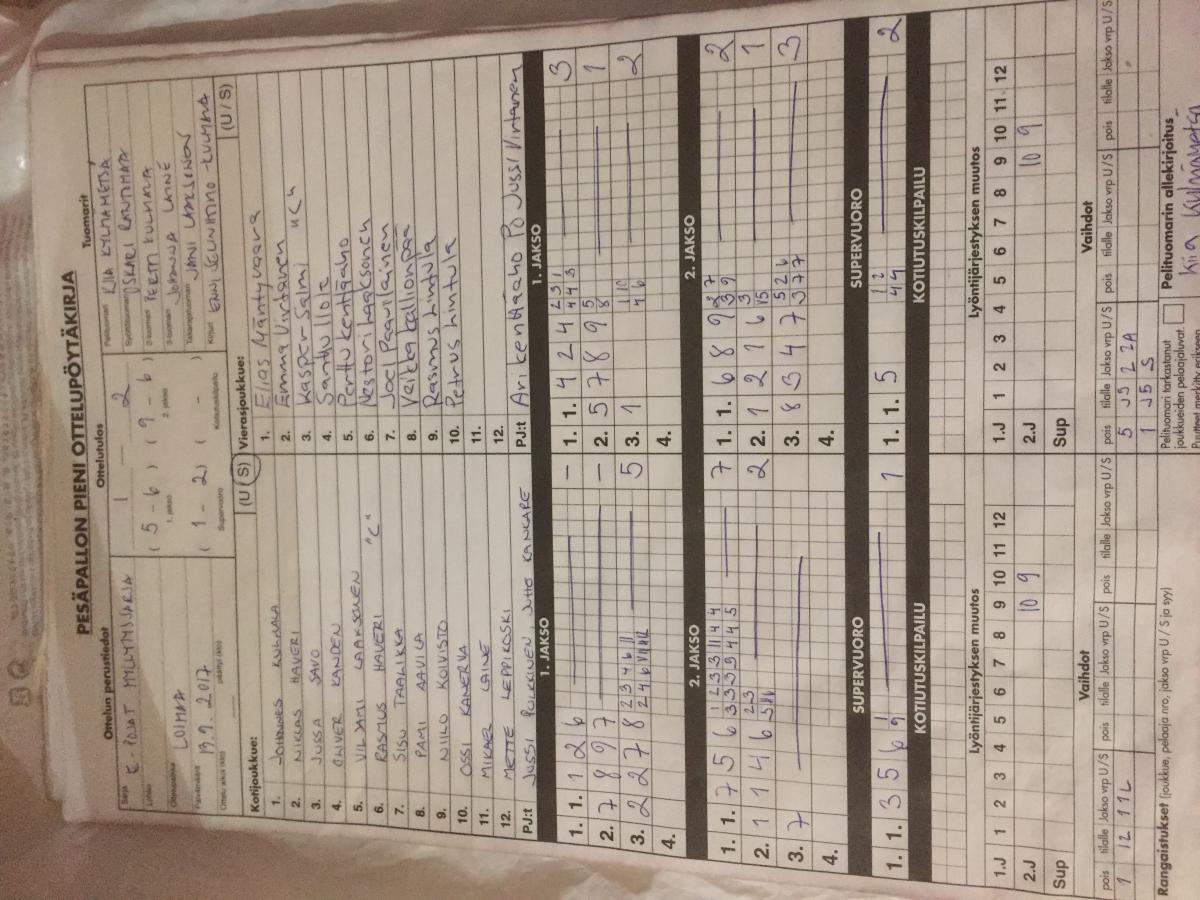 PESÄPALLON PIENI OTTELUPÖYTÄKIRJA
Ottelun perustiedot
Ottelutulos
Tuomarit
Sarja E-POJAT MYLLYTYSSARJA
Lohko
Ottelupaikka LOIMAA
Päivämäärä 19.9.2017
Ottelu alkoi (klo) päättyi (klo)
1 — 2
( 5 - 6 ) ( 9 - 6 )
1. jakso 2. jakso
( 1 - 2 ) ( - )
Supervuoro Kotiutuskilpailu
Pelituomari KIIA KYLMÄMETSÄ
Syöttötuomari OSKARI RAUTIMAA
2-tuomari PERTTI KULMALA
3-tuomari JOHANNA LAINE
Takarajatuomari JANI LAAKSONEN
Kirjuri ENNI SEUNIEMO-KULMALA
Kotijoukkue: (U / S)
1. JOHANNES KULMALA
2. NIKLAS HAVERI
3. JUSSA SAVO
4. OLIVER KANDEN
5. VILJAMI LAAKSONEN
6. RASMUS HAVERI "C"
7. SISU TAALIKKA
8. PAMI AAVILA
9. NIILO KOIVISTO
10. OSSI KANERVA
11. MIKAEL LAINE
12. METTE LEPPIKOSKI
PJ:t JUSSI PULKKINEN JUTTO KANKARE
Vierasjoukkue: (U / S)
1. Elias Mäntyvaara
2. Emma Virtanen "C"
3. Kasper Salmi
4. Santtu Ilola
5. Perttu kenttäaho
6. Nestori Laaksonen
7. Joel Paavilainen
8. Veikka kallionpää
9. Rasmus Lintula
10. Petrus Lintula
11.
12.
PJ:t Ari kenttäaho PO Jussi Virtanen
1. JAKSO
1. 1. 1 2 6 –
2. 7 8 9 7 –
3. 2 2 7 8 5
4.
1. JAKSO
1. 1. 4 2 4 3
2. 5 7 8 9 1
3. 1 2
4.
2. JAKSO
1. 1. 7 5 6 7
2. 1 1 4 6 2
3. 7
4.
2. JAKSO
1. 1. 6 8 9 2
2. 1 2 1 6 1
3. 8 3 4 7 3
4.
SUPERVUORO
1. 1. 3 5 6 1
SUPERVUORO
1. 1. 5 2
KOTIUTUSKILPAILU
KOTIUTUSKILPAILU
Lyöntijärjestyksen muutos
1.J 1 2 3 4 5 6 7 8 9 10 11 12
2.J 10 9
Sup
Lyöntijärjestyksen muutos
1.J 1 2 3 4 5 6 7 8 9 10 11 12
2.J 10 9
Sup
Vaihdot
pois tilalle Jakso vrp U/S pois tilalle Jakso vrp U/S pois tilalle Jakso vrp U/S
1 12 1 1L
Vaihdot
pois tilalle Jakso vrp U/S pois tilalle Jakso vrp U/S pois tilalle Jakso vrp U/S
5 J5 2 2A
1 J5 S
Rangaistukset (joukkue, pelaaja nro, jakso vrp U / S ja syy)
Pelituomari tarkastanut
joukkueiden pelaajaluvat.
Puutteet merkitty erikseen
Pelituomarin allekirjoitus
Kiia Kylmämetsä